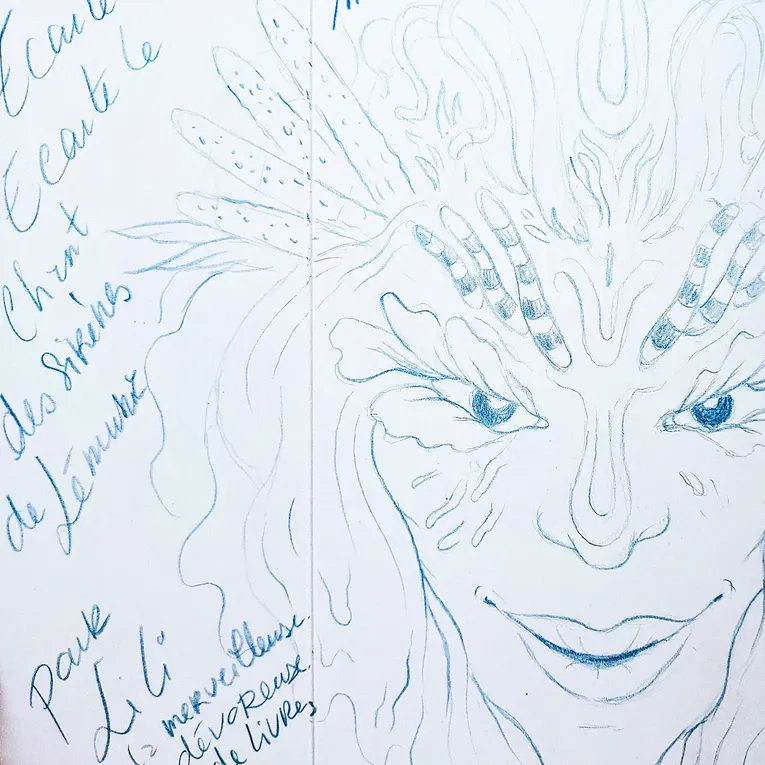 Ecoute
Ecoute le
Chant
des sirènes
de Lémurie
Pour
Lili
la merveilleuse
dévoreuse
de livres